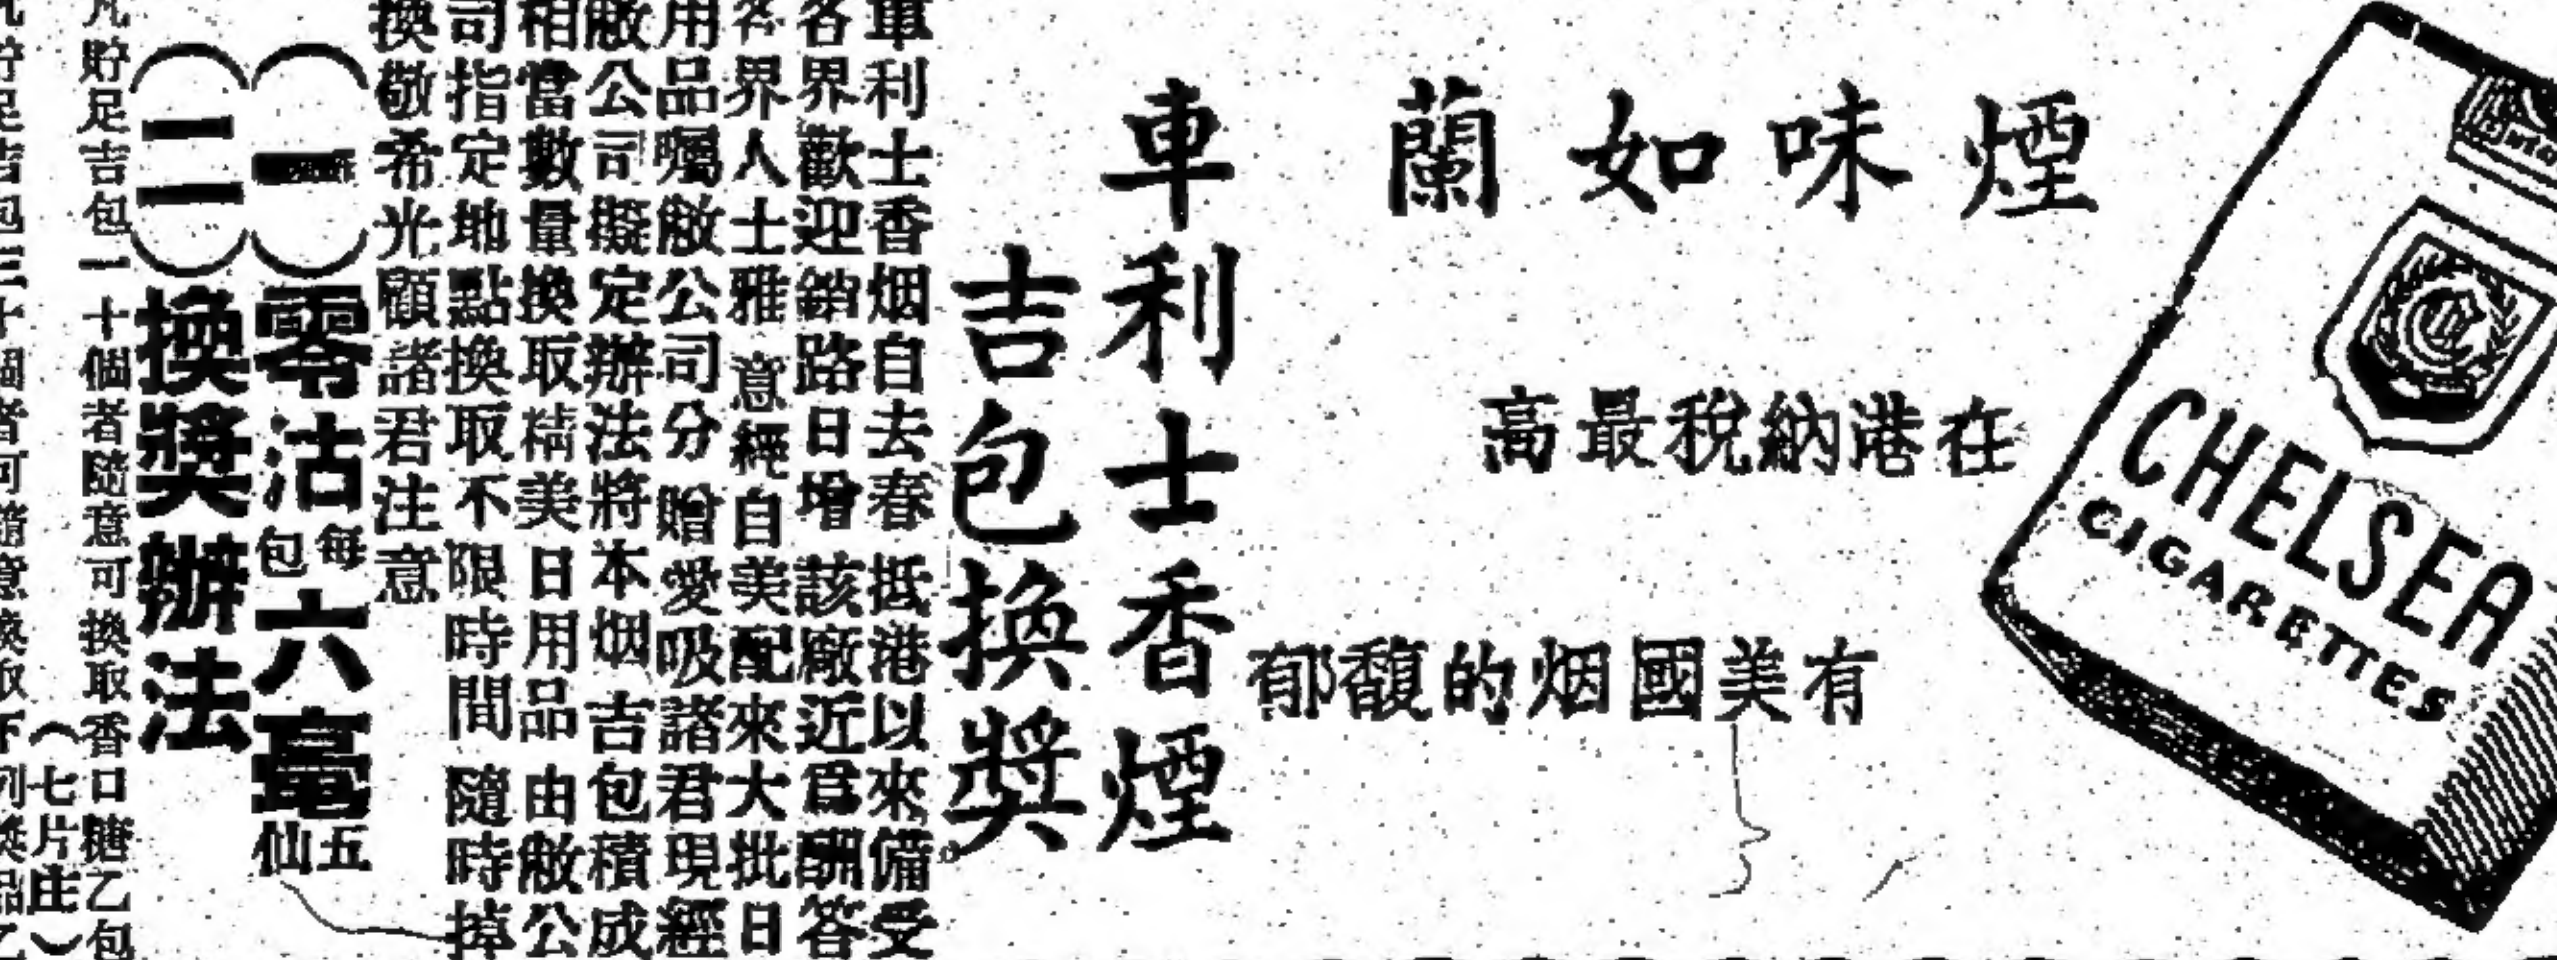 CHELSEA
CIGARETTES
煙味如蘭
在港納稅最高
有美國烟的馥郁
車利士香煙
吉包換獎
車利士香烟自去春抵港以來備受
各界歡迎銷路日增該廠近爲酬答
各界人士雅意經自美配來大批日
用品囑敝公司分贈愛吸諸君現經
敝公司擬定辦法將本烟吉包積成
相當數量換取精美日用品由敝公
司指定地點換取不限時間隨時掉
換敬希光顧諸君注意
（一）零沽每包六毫五仙
（二）換獎辦法
凡貯足吉包一十個者隨意可換取香口糖乙包
（七片庄）
凡貯足吉包三十個者可隨意換取下列獎品乙